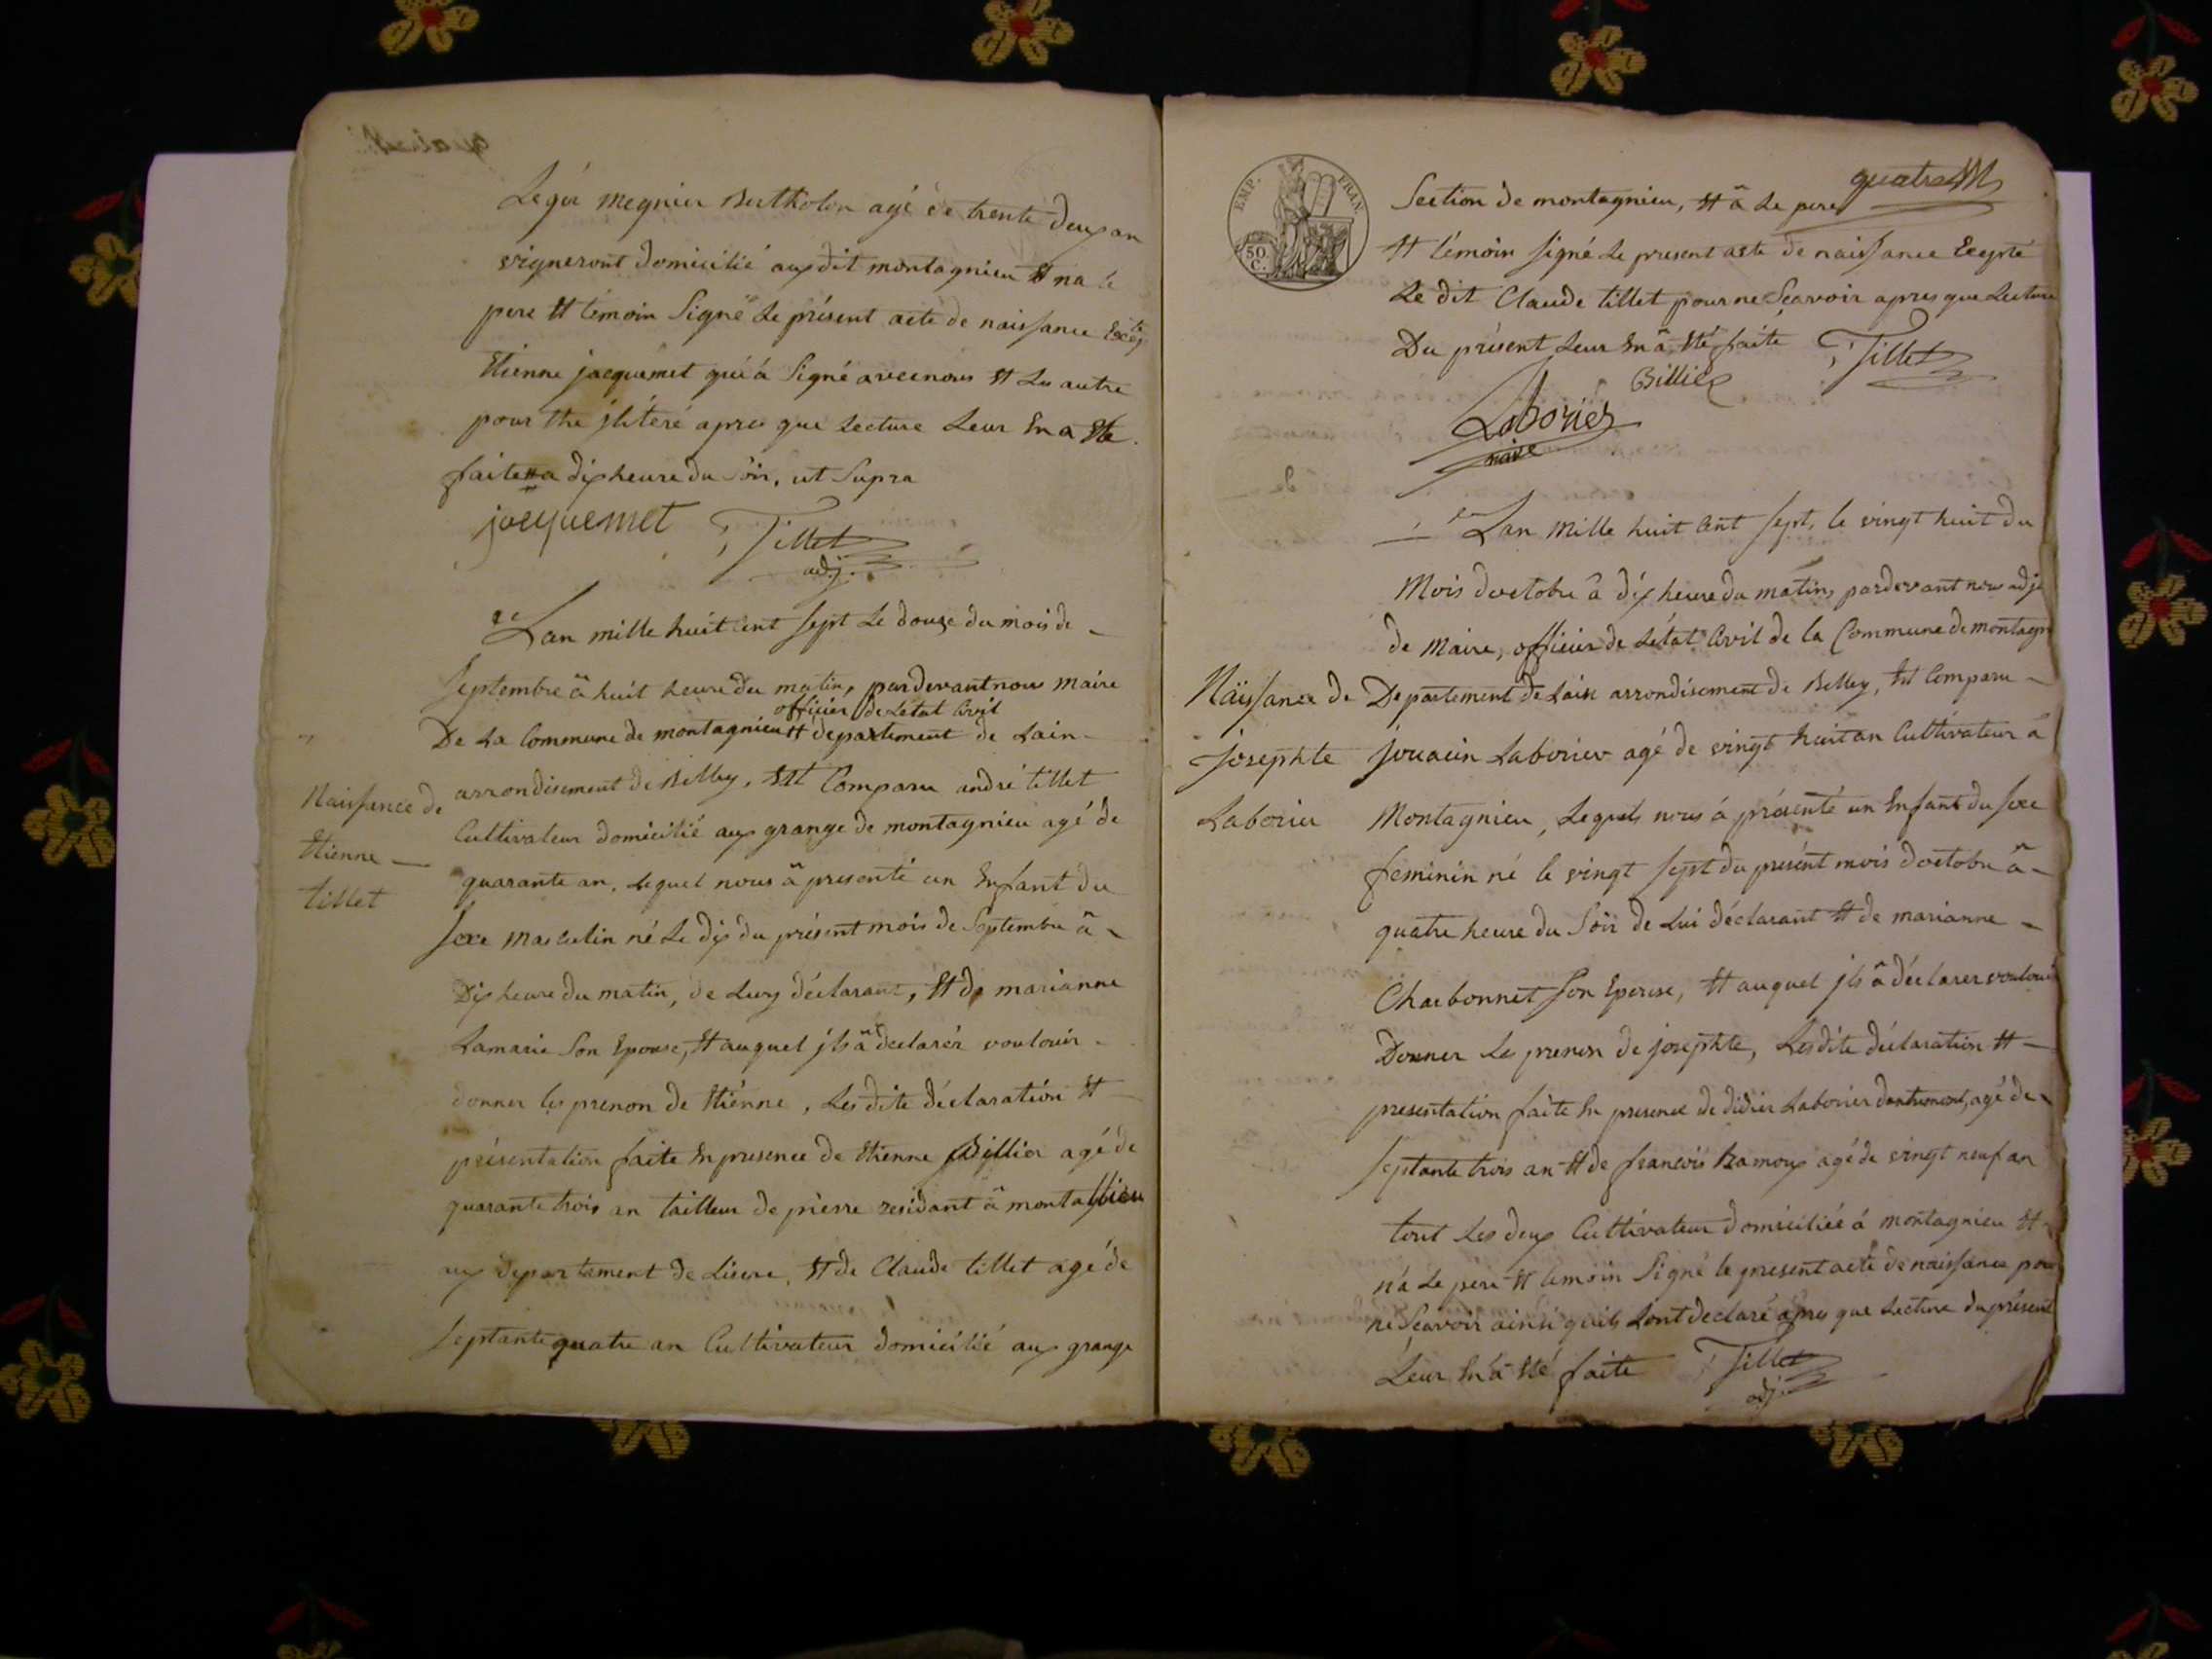 Legér megnier Bertholon agé de trente deux an
vigneront domicilié aux dit montagnieu Et na le
pere Et temoin Signé Le présent acte de naissance Excepte
Etienne jacquemet qui á Signé avec nous Et Les autre
pour Etre jliteré apres que Lecture Leur En a Ete
faite a dix heure du Soir, ut Supra
jacquemet Tillet
adj.
Lan mille huit cent sept Le douze du mois de
Septembre â huit heure du matin, pardevant nous maire
officier de Létat Civil
De La Commune de montagnieu Et departement de Lain
Naissance de
Etienne
tillet
arrondisement de Belley, Est Comparu andré tillet
Cultivateur domicilié aux grange de montagnieu agé de
quarante an, Lequel nous â presenté un Enfant du
Sexe masculin né Le dix du présent mois de Septembre â
Dix heure du matin, de Luy déclarant, Et de marianne
Lamarie Son Epouse, Et auquel jls â declarér voulouir
donner les prenon de Etienne, Les dite déclaration Et
présentation faite En presence de Etienne Billier agé de
quarante trois an tailleur de pierre residant â montallieu
aux departement de Lisere, Et de Claude tillet agé de
Septante quatre an Cultivateur domicilié aux grange
EMP. FRAN.
50 C.
quatre
Section de montagnieu, Et â Le pere
Et témoin signé Le present acte de naissance Exepté
Le dit Claude tillet pour ne Sçavoir apres que Lecture
Du présent Leur En â Eté faite Tillet
Billiez
Laborier
maire
Lan Mille huit Cent sept, le vingt huit du
Mois doctobre â dix heure du matin, pardevant nous adj
de Maire, officier de Létat Civil de la Commune de montagn
Naissance de
josephte
Laborier
Departement de Lain arrondisement de Belley, Est Comparu
jouacin Laborier agé de vingt huit an Cultivateur â
Montagnieu, Lequels nous á présenté un Enfant du sexe
feminin né le vingt sept du présent mois doctobre â
quatre heure du Soir de Lui déclarant Et de marianne
Charbonnet son Epouse, Et auquel jls â déclarer voulouir
Donner Les prenon de josephte, Les dite déclaration Et
presentation faite En presence de didier Laborier agé de
septante trois an Et de francois Ramoux agé de vingt neuf an
tout Les deux Cultivateur domiciliée á montagnieu Et
n'a Le pere Et temoin Signé le present acte de naissance pour
ne Sçavoir ainsi quils Lont declaré apres que Lecture du présent
Leur En á Eté faite Tillet
adj.